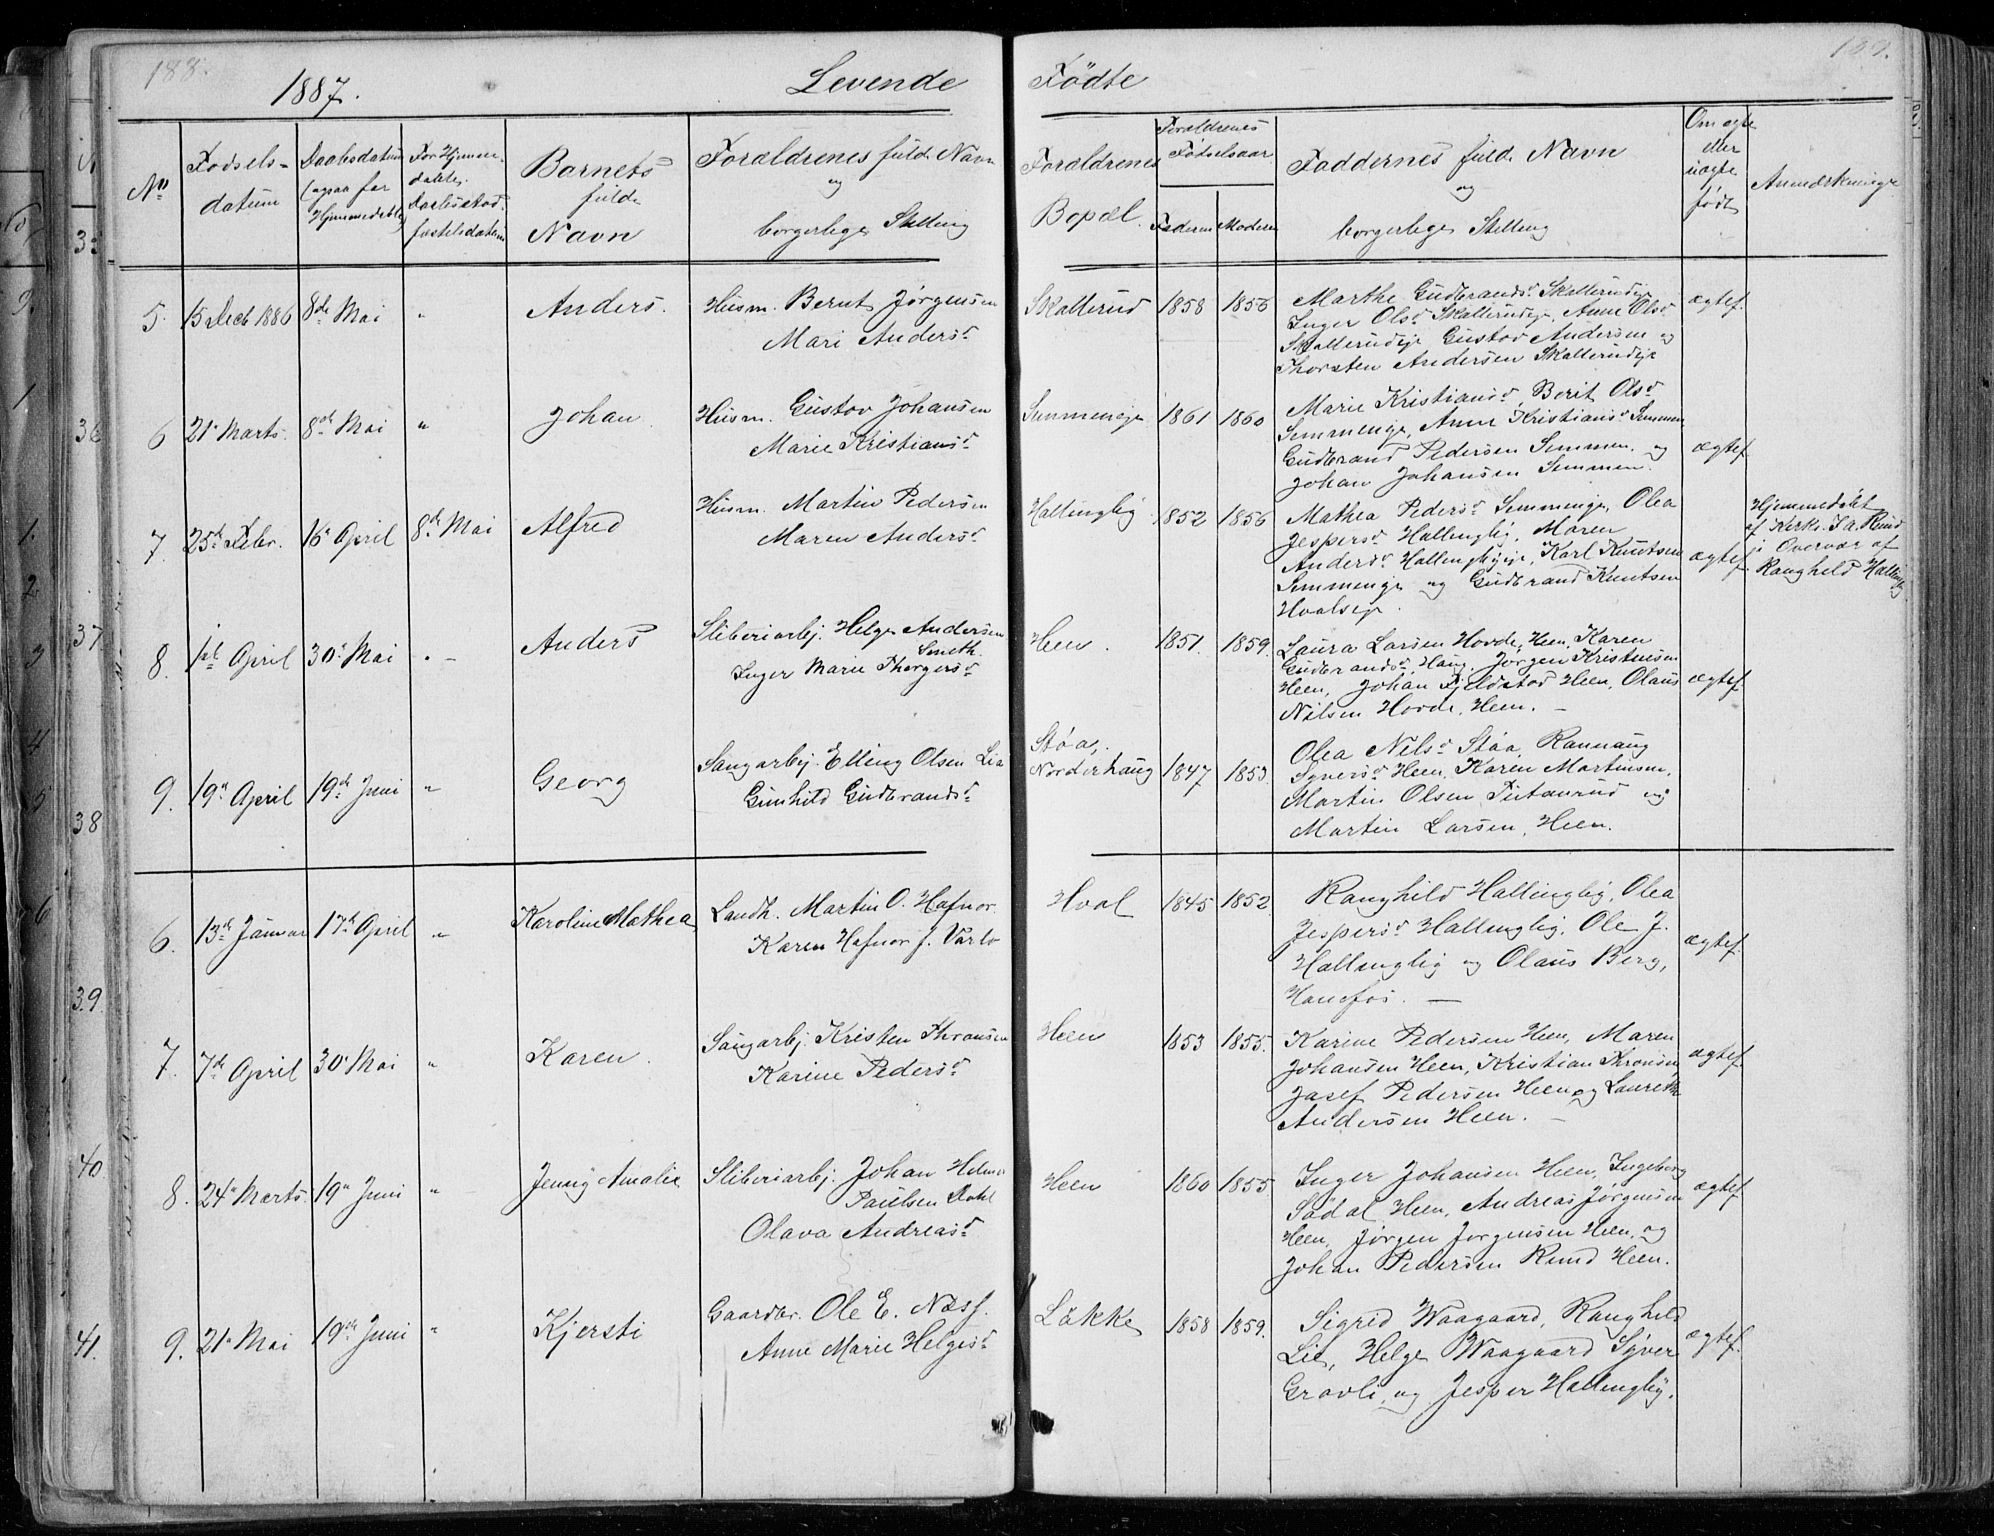 188. 189.
1887. Levende Fødte
No
Fødsels-
datum
Daabsdatum
(ogsaa for
Hjemmedøbte)
For Hjemme-
døbte,
Daabsstad-
festelsdatum
Barnets
fulde
Navn
Forældrenes fulde Navn
og
borgerlige Stilling
Forældrenes
Bopæl.
Forældrenes
Fødselsaar
Faderen Moderen
Faddernes fulde Navn
og
borgerlige Stilling
Om ægte
eller
uægte
født
Anmærkninge
5. 15 Decb 1886 8de Mai " Anders. Husm. Bernt Jørgensen
Mari Andersd
Skallerud 1858 1856 ægtef.
Marthe Gudbrandsd Skallerudeje
Inger Olsd Skallerudeje, Anne Olsd
Skallerudeje Gustav Andersen og
Thorsten Andersen Skallerudeje
6 21 Marts. 8de Mai " Johan Husm. Gustav Johansen
Marie Kristiansd
Semmeneje 1861 1860 ægtef
Marie Kristiansd, Berit Olsd
Semmeneje, Anne Kristiansd Semmen
Gudbrand Pedersen Semmen. og
Johan Johansen Semmen.
7. 25de Febr. 16 April 8de Mai Alfred Husm. Martin Pedersen
Maren Andersd
Hallingby 1852 1856 ægtef
Mathea Pedersd Semmenge, Olea
Jespersd Hallingby, Maren
Andersd Hallingbyeje, Karl Knutsen
Semmenge og Gudbrand Knutsen
Hvalseje.
Hjemmedøbt
af Kirks. I. A. Rund
i Overvær af
Ranghild Hallingby
8. 1ste April 30 Mai " Anders Sliberiarbj. Helge Andersen
Smeth.
Inger Marie Thorgersd
Heen. 1851. 1859. ægtef.
Laura Larsen Hovde, Heen, Karen
Gudbrandsd Haug. Jørgen Kristensen
Heen, Johan Fjeldstad Heen, Olaus
Nilsen Hovde, Heen. —
9. 19 April 19de Juni " Georg Saugarbj. Elling Olsen Lia
Gunhild Gudbrandsd
Støa,
Norderhaug 1847 1853
Olea Nelsd Støa, Rannaug
Syversd Heen, Karen Martinsen,
Martin Olsen Tutanrud og
Martin Larsen, Heen.
6. 13de Januar 17de April " Karoline Mathea Landh. Martin O. Hafnor.
Karen Hafnor f. Varlo
Hval 1845 1852 ægtef.
Ranghild Hallingby, Olea
Jespersd Hallingby, Ole J.
Hallingby og Olaus Berg,
Hønefos. —
7. 7de April 30 Mai " Karen. Saugarbj. Kristen Thronsen
Karine Pedersd
Heen 1853 1855. ægtef.
Karine Pedersen Heen, Maren
Johansen Heen, Kristian Thronsen
Josef Pedersen Heen og Laureth
Andersen Heen. —
8. 24 Marts. 19 Juni " Jenny Amalie Sliberiarbj. Johan Helmer
Paulsen Dahl
Olava Andreasd
Heen 1860 1855 ægtef.
Inger Johansen Heen, Ingeborg
Sødal Heen, Andreas Jørgensen
Heen, Jørgen Jørgensen Heen, og
Johan Pedersen Rund Heen.
9. 21 Mai 19de Juni " Kjersti Gaardbr. Ole E. Næss.
Anne Marie Helgesd
Løkke 1858 1859. ægtef.
Sigrid Waagaard, Ranghild
Lie, Helge Waagaard Syver
Gravli, og Jesper Hallingby.
35
36
37
38
39
40
41.